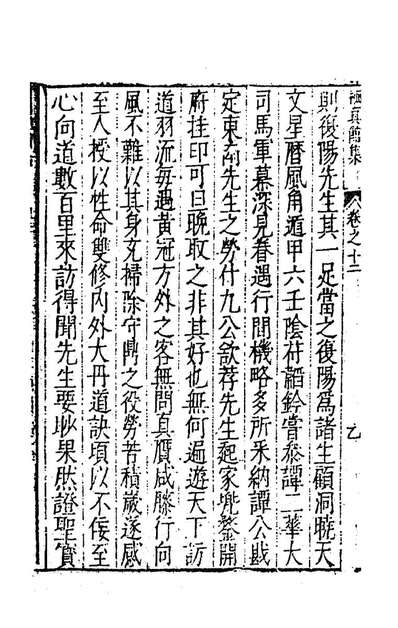 棲真館集
卷之十二
乙
則復陽先生其一足當之復陽爲諸生顧洞曉天
文星曆風角遁甲六壬陰符韜鈐嘗叅譚二華大
司馬軍幕深見眷遇行間機略多所采納譚公戡
定東南先生之勞什九公欲荐先生起家兜鍪開
府挂印可旦晚取之非其好也無何遍遊天下訪
道羽流每遇黃冠方外之客無問真贋咸膝行向
風不難以其身充掃除守鼎之役勞苦積歲遂感
至人授以性命雙修內外大丹道訣頃以不佞至
心向道數百里來訪得聞先生要眇果然證聖寔